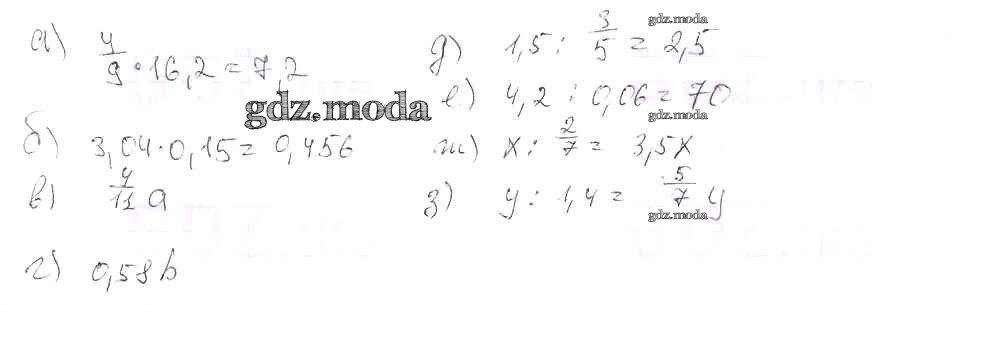 а) 4/9 · 16,2 = 7,2
б) 3,04 · 0,15 = 0,456
в) 4/11 a
г) 0,58 b
д) 1,5 : 3/5 = 2,5
е) 4,2 : 0,06 = 70
ж) x : 2/7 = 3,5x
з) y : 1,4 = 5/7 y
gdz.moda
gdz.moda
gdz.moda
gdz.moda